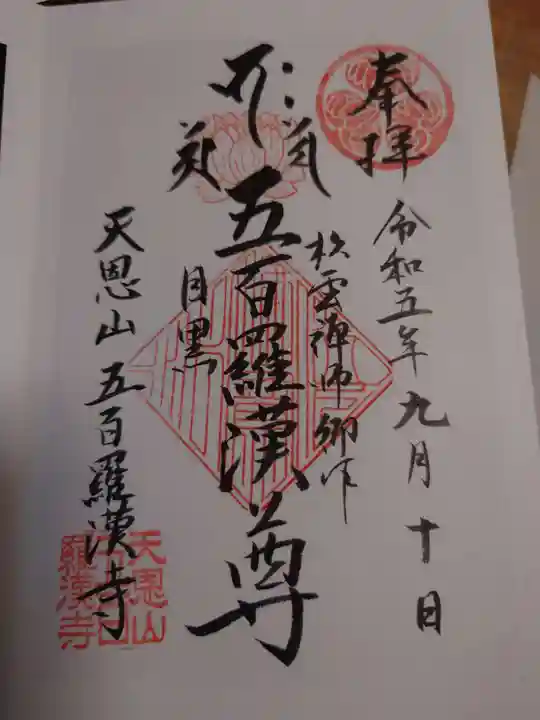 奉拝
令和五年九月十日
松雲禅師御作
五百羅漢尊
目黒
天恩山五百羅漢寺
天恩山
五百
羅漢寺